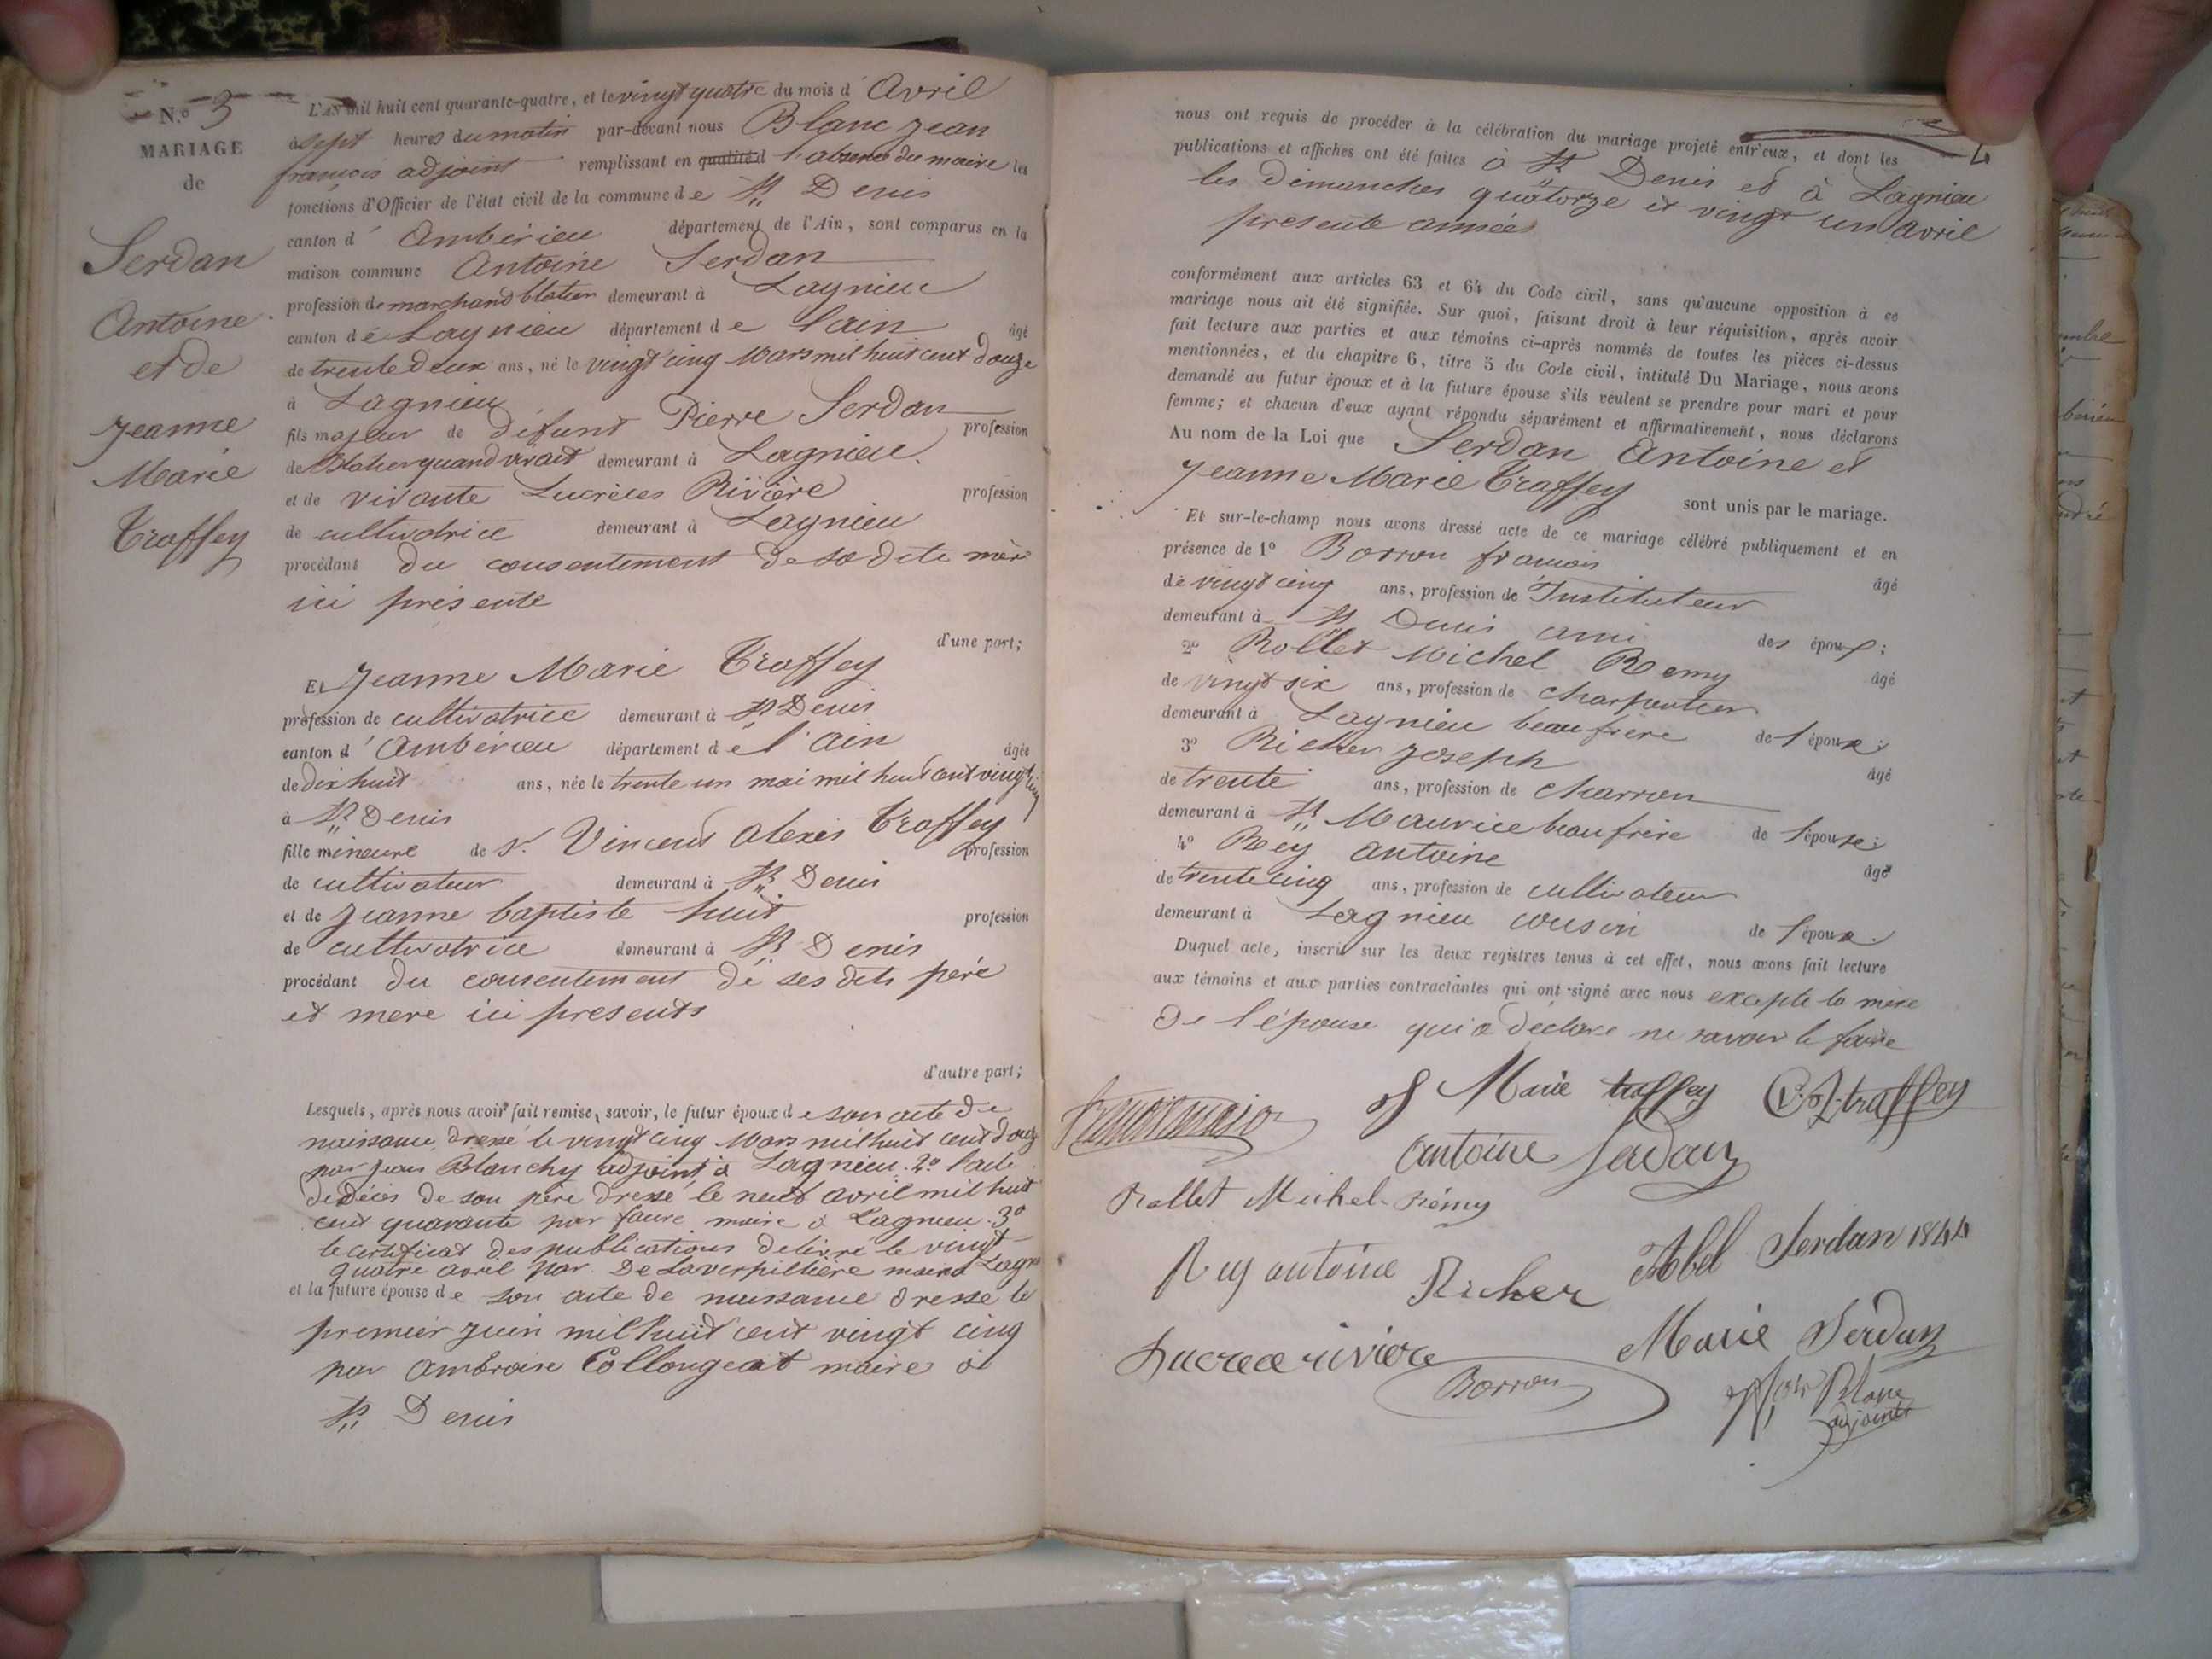 N.º 3
MARIAGE
de
Serdan
Antoine
et de
Jeanne
Marie
Traffey
L'AN mil huit cent quarante-quatre, et le vingt quatre du mois d' Avril
à sept heures du matin par-devant nous Blanc Jean
francois adjoint remplissant en qualité d l'absence du maire les
fonctions d'Officier de l'état civil de la commune de St Denis
canton d' Ambérieu département de l'Ain, sont comparus en la
maison commune Antoine Serdan
profession de marchand blatier demeurant à Lagnieu
canton de Lagnieu département de l'ain âgé
de trente deux ans, né le vingt cinq Mars mil huit cent douze
à Lagnieu
fils majeur de défunt Pierre Serdan profession
de Blatier quand vivait demeurant à Lagnieu.
et de vivante Lucrèces Rivière profession
de cultivatrice demeurant à Lagnieu
procédant du consentement de sa dite mère
ici présente
d'une part;
Et Jeanne Marie Traffey
profession de cultivatrice demeurant à St Denis
canton d' Ambérieu département de l'ain âgée
de dix huit ans, née le trente un mai mil huit cent vingt cinq
à St Denis
fille mineure de Sr. Vincent Alexis Traffey
profession
de cultivateur demeurant à St Denis
et de Jeanne baptiste huit profession
de cultivatrice demeurant à St Denis
procédant du consentement de ses dits père
et mere ici presents
d'autre part;
Lesquels, après nous avoir fait remise, savoir, le futur époux de son acte de
naissance dressé le vingt cinq Mars mil huit cent douze
par Jean Blanchy adjoint à Lagnieu. 2º l'acte
de décès de son père dressé le neuf avril mil huit
cent quarante par faure maire à Lagnieu. 3º
le certificat des publications délivré le vingt
quatre avril par De Laverpillière maire
et la future épouse de son acte de naissance dressé le
premier Juin mil huit cent vingt cinq
par Ambroise Collongeat maire à
St Denis
4
nous ont requis de procéder à la célébration du mariage projeté entr'eux, et dont les
publications et affiches ont été faites à St Denis et à Lagnieu
les dimanches quatorze et vingt un avril
presente année
conformément aux articles 63 et 64 du Code civil, sans qu'aucune opposition à ce
mariage nous ait été signifiée. Sur quoi, faisant droit à leur réquisition, après avoir
fait lecture aux parties et aux témoins ci-après nommés de toutes les pièces ci-dessus
mentionnées, et du chapitre 6, titre 5 du Code civil, intitulé Du Mariage, nous avons
demandé au futur époux et à la future épouse s'ils veulent se prendre pour mari et pour
femme; et chacun d'eux ayant répondu séparément et affirmativement, nous déclarons
Au nom de la Loi que Serdan Antoine et
Jeanne Marie Traffey sont unis par le mariage.
Et sur-le-champ nous avons dressé acte de ce mariage célébré publiquement et en
présence de 1º Borron francois âgé
de vingt cinq ans, profession de Instituteur
demeurant à St Denis ami des époux;
2º Rollet Michel Remy âgé
de vingt six ans, profession de charpentier
demeurant à Lagnieu beaufrère de l'époux;
3º Richer Joseph âgé
de trente ans, profession de charron
demeurant à St Maurice beaufrère de l'épouse;
4º Rey Antoine âgé
de trente cinq ans, profession de cultivateur
demeurant à Lagnieu cousin de l'époux.
Duquel acte, inscrit sur les deux registres tenus à cet effet, nous avons fait lecture
aux témoins et aux parties contractantes qui ont signé avec nous excepté la mère
de l'épouse qui a déclaré ne savoir le faire
Marie traffey traffey
antoine Serdan
Rollet Michel-Rémy
Rey antoine Richer Abel Serdan 1844
Lucrece rivière Marie Serdan
Borron Blanc
adjoint